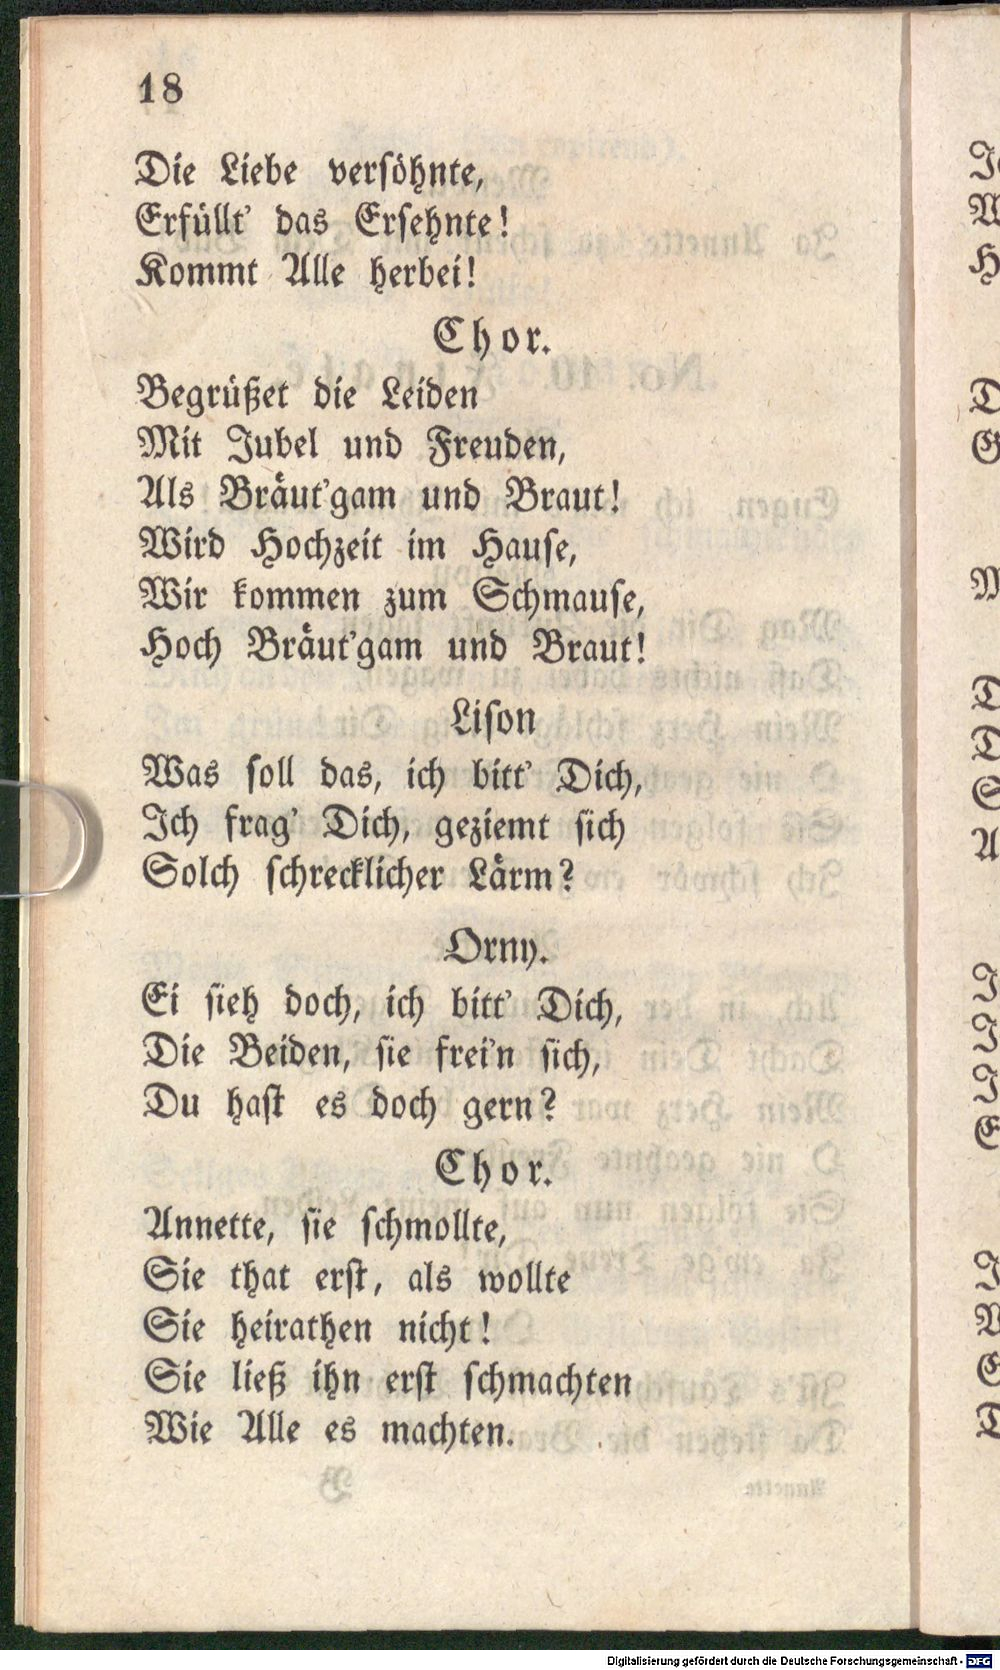 18
Die Liebe versöhnte,
Erfüllt' das Ersehnte!
Kommt Alle herbei!
Chor.
Begrüßet die Leiden
Mit Jubel und Freuden,
Als Bräut'gam und Braut!
Wird Hochzeit im Hause,
Wir kommen zum Schmause,
Hoch Bräut'gam und Braut!
Lison
Was soll das, ich bitt' Dich,
Ich frag' Dich, geziemt sich
Solch schrecklicher Lärm?
Orny.
Ei sieh doch, ich bitt' Dich,
Die Beiden, sie frei'n sich,
Du hast es doch gern?
Chor.
Annette, sie schmollte,
Sie that erst, als wollte
Sie heirathen nicht!
Sie ließ ihn erst schmachten
Wie Alle es machten.
Digitalisierung gefördert durch die Deutsche Forschungsgemeinschaft - DFG